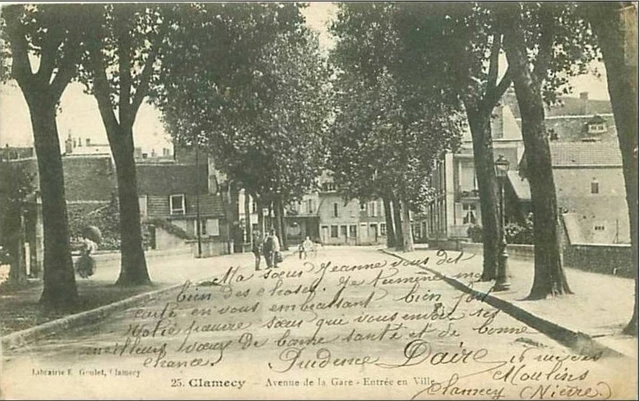 Ma sœur Jeanne vous dit
bien des choses. Je termine ma
carte en vous embrassant bien fort
Votre pauvre sœur qui vous envoie ses
meilleurs vœux de bonne santé et de bonne
chance.
Prudence Daire 16 rue des
Moulins
Clamecy (Nièvre)
Librairie E. Goulet, Clamecy
25. Clamecy - Avenue de la Gare - Entrée en Ville